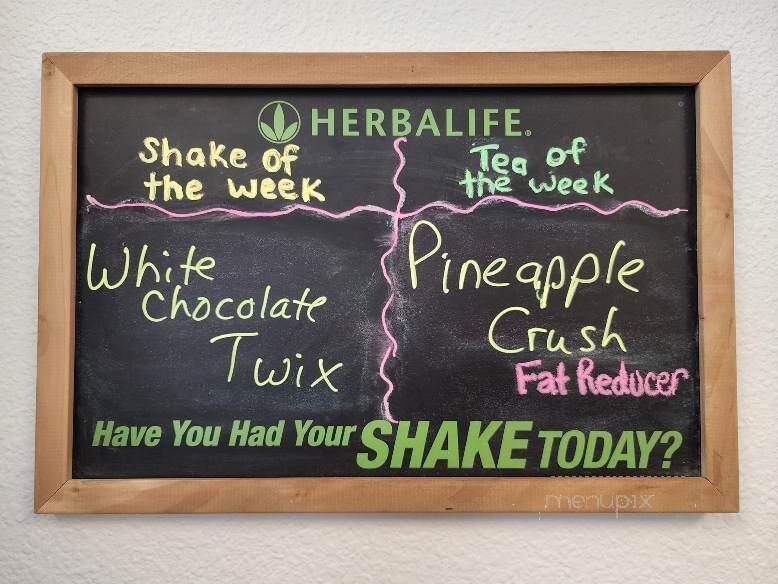 HERBALIFE.
Shake of
the week
White
Chocolate
Twix
Tea of
the week
Pineapple
Crush
Fat Reducer
Have You Had Your SHAKE TODAY?
menupix